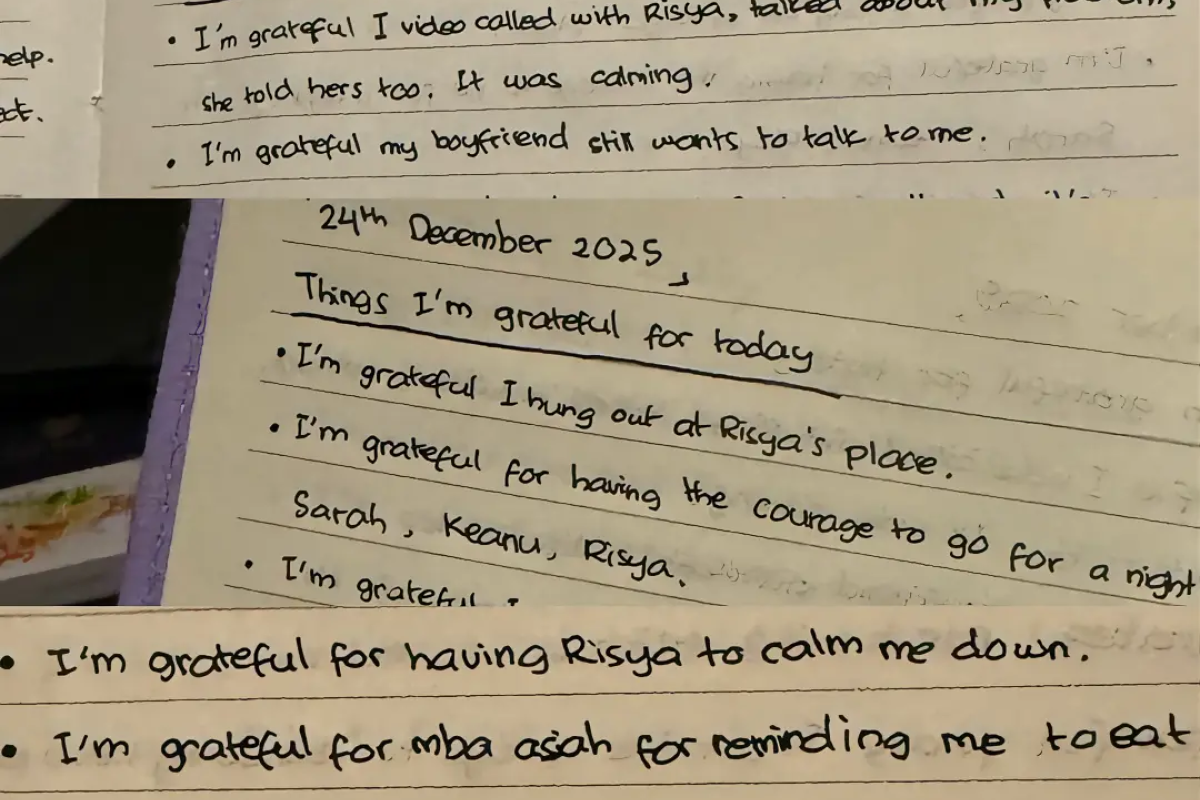 help.
ect.
• I'm grateful I video called with Risya, talked about my
she told hers too. It was calming.
• I'm grateful my boyfriend still wants to talk to me.
24th December 2025,
Things I'm grateful for today
• I'm grateful I hung out at Risya's place.
• I'm grateful for having the courage to go for a night
Sarah, Keanu, Risya.
• I'm grateful I
• I'm grateful for having Risya to calm me down.
• I'm grateful for mba asiah for reminding me to eat